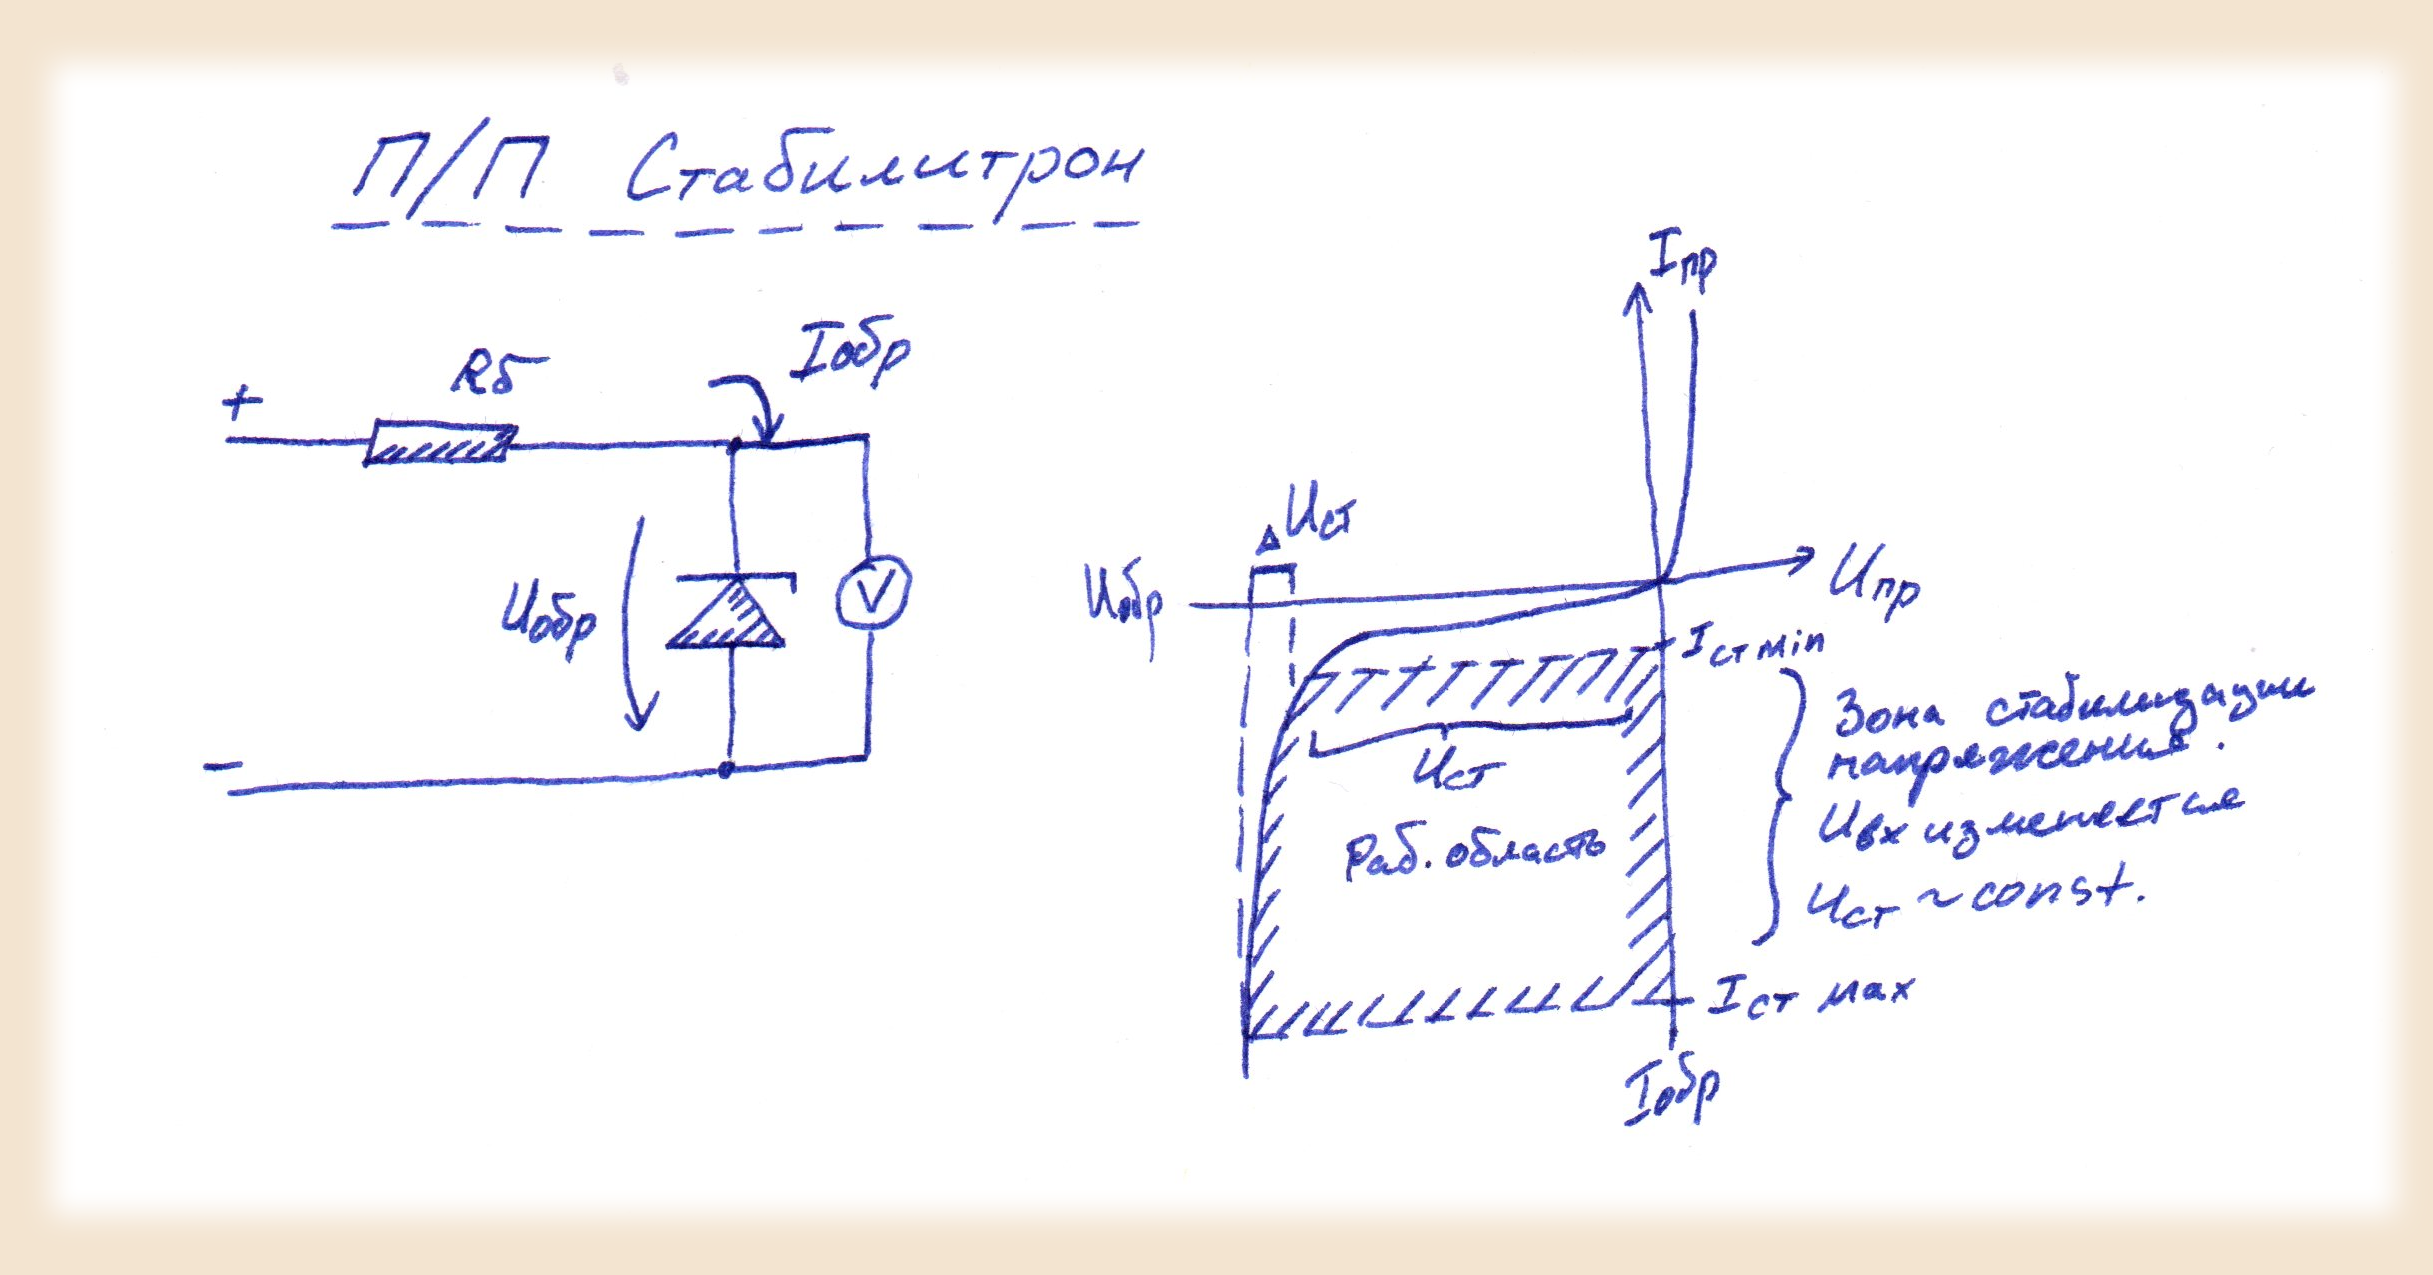 П/П Стабилитрон
+
Rб
Iобр
Uобр
V
-
Iпр
ΔUст
Uобр
Uпр
Iст min
Uст
Раб. область
Зона стабилизации
напряжения.
Uвх изменяется
Uст ~ const.
Iст мах
Iобр